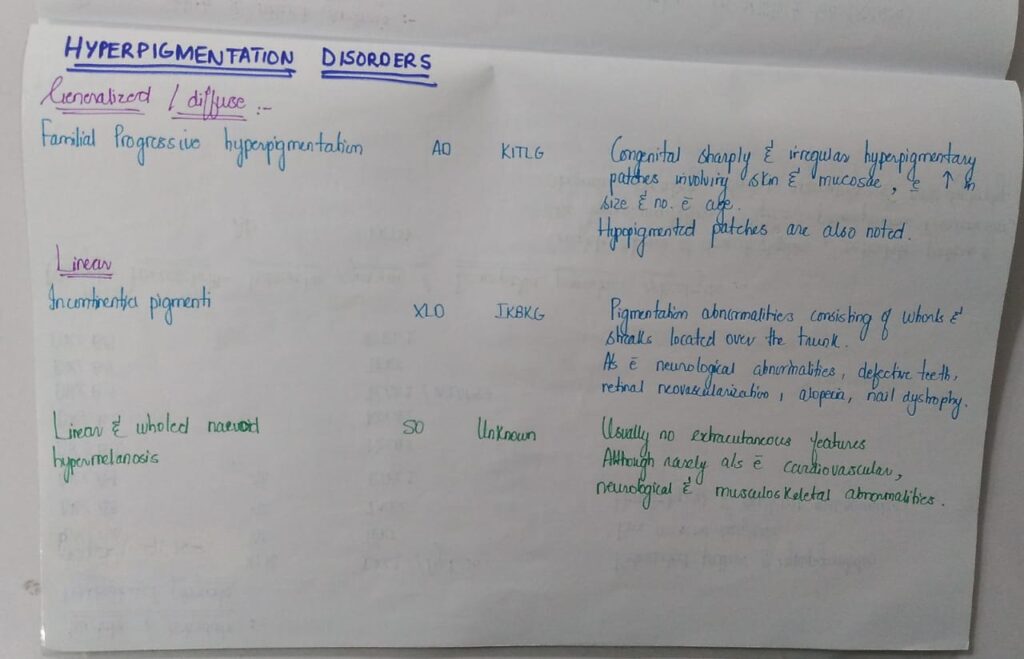 HYPERPIGMENTATION DISORDERS
Generalized / diffuse :-
Familial Progressive hyperpigmentation AD KITLG Congenital sharply & irregular hyperpigmentary
patches involving skin & mucosae, c̄ ↑ in
size & no. c̄ age.
Hypopigmented patches are also noted.
Linear
Incontinentia pigmenti XLD IKBKG Pigmentation abnormalities consisting of whorls &
streaks located over the trunk.
As c̄ neurological abnormalities, defective teeth,
retinal neovascularization, alopecia, nail dystrophy.
Linear & wholed naevoid SO Unknown Usually no extracutaneous features
hypermelanosis Although rarely als c̄ cardiovascular,
neurological & musculoskeletal abnormalities.